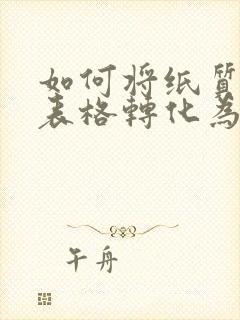 如何将纸質
表格轉化為
午舟